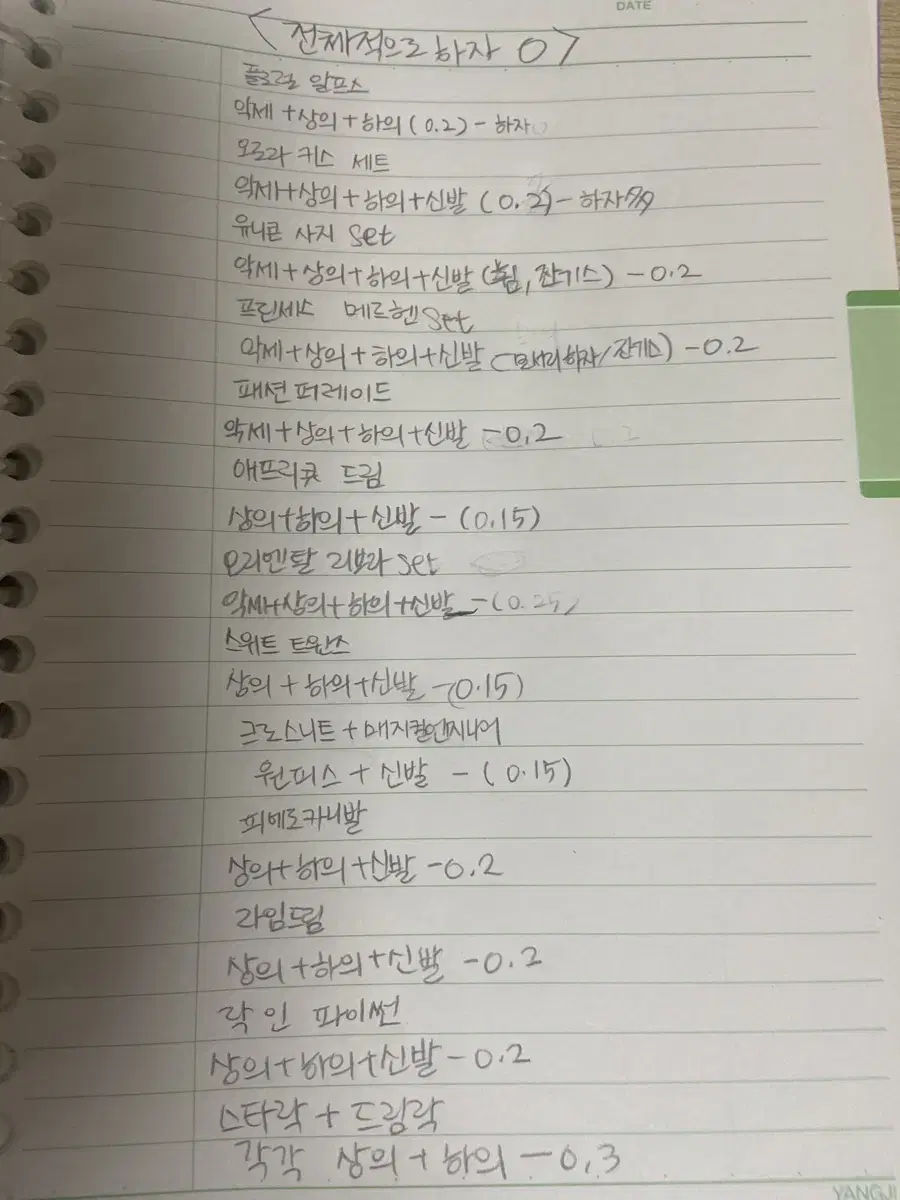 DATE
<전체적으로 하자 O>
플로럴 알프스
악세+상의+하의(0.2)-하자
오로라 키스 세트
악세+상의+하의+신발(0.2)-하자多
유니콘 사지 Set
악세+상의+하의+신발(휨,잔기스)-0.2
프린세스 메르헨 Set
악세+상의+하의+신발(모서리하자/잔기스)-0.2
패션퍼레이드
악세+상의+하의+신발 -0.2
애프리콧 드림
상의+하의+신발-(0.15)
오리엔탈 리보라 Set
악세+상의+하의+신발-(0.25)
스위트 트윈스
상의+하의+신발-(0.15)
크로스니트+매지컬엔지니어
원피스+신발-(0.15)
피에로카니발
상의+하의+신발-0.2
라임드림
상의+하의+신발-0.2
락인 파이썬
상의+하의+신발-0.2
스타락+드림락
각각 상의+하의-0.3
YANGJI